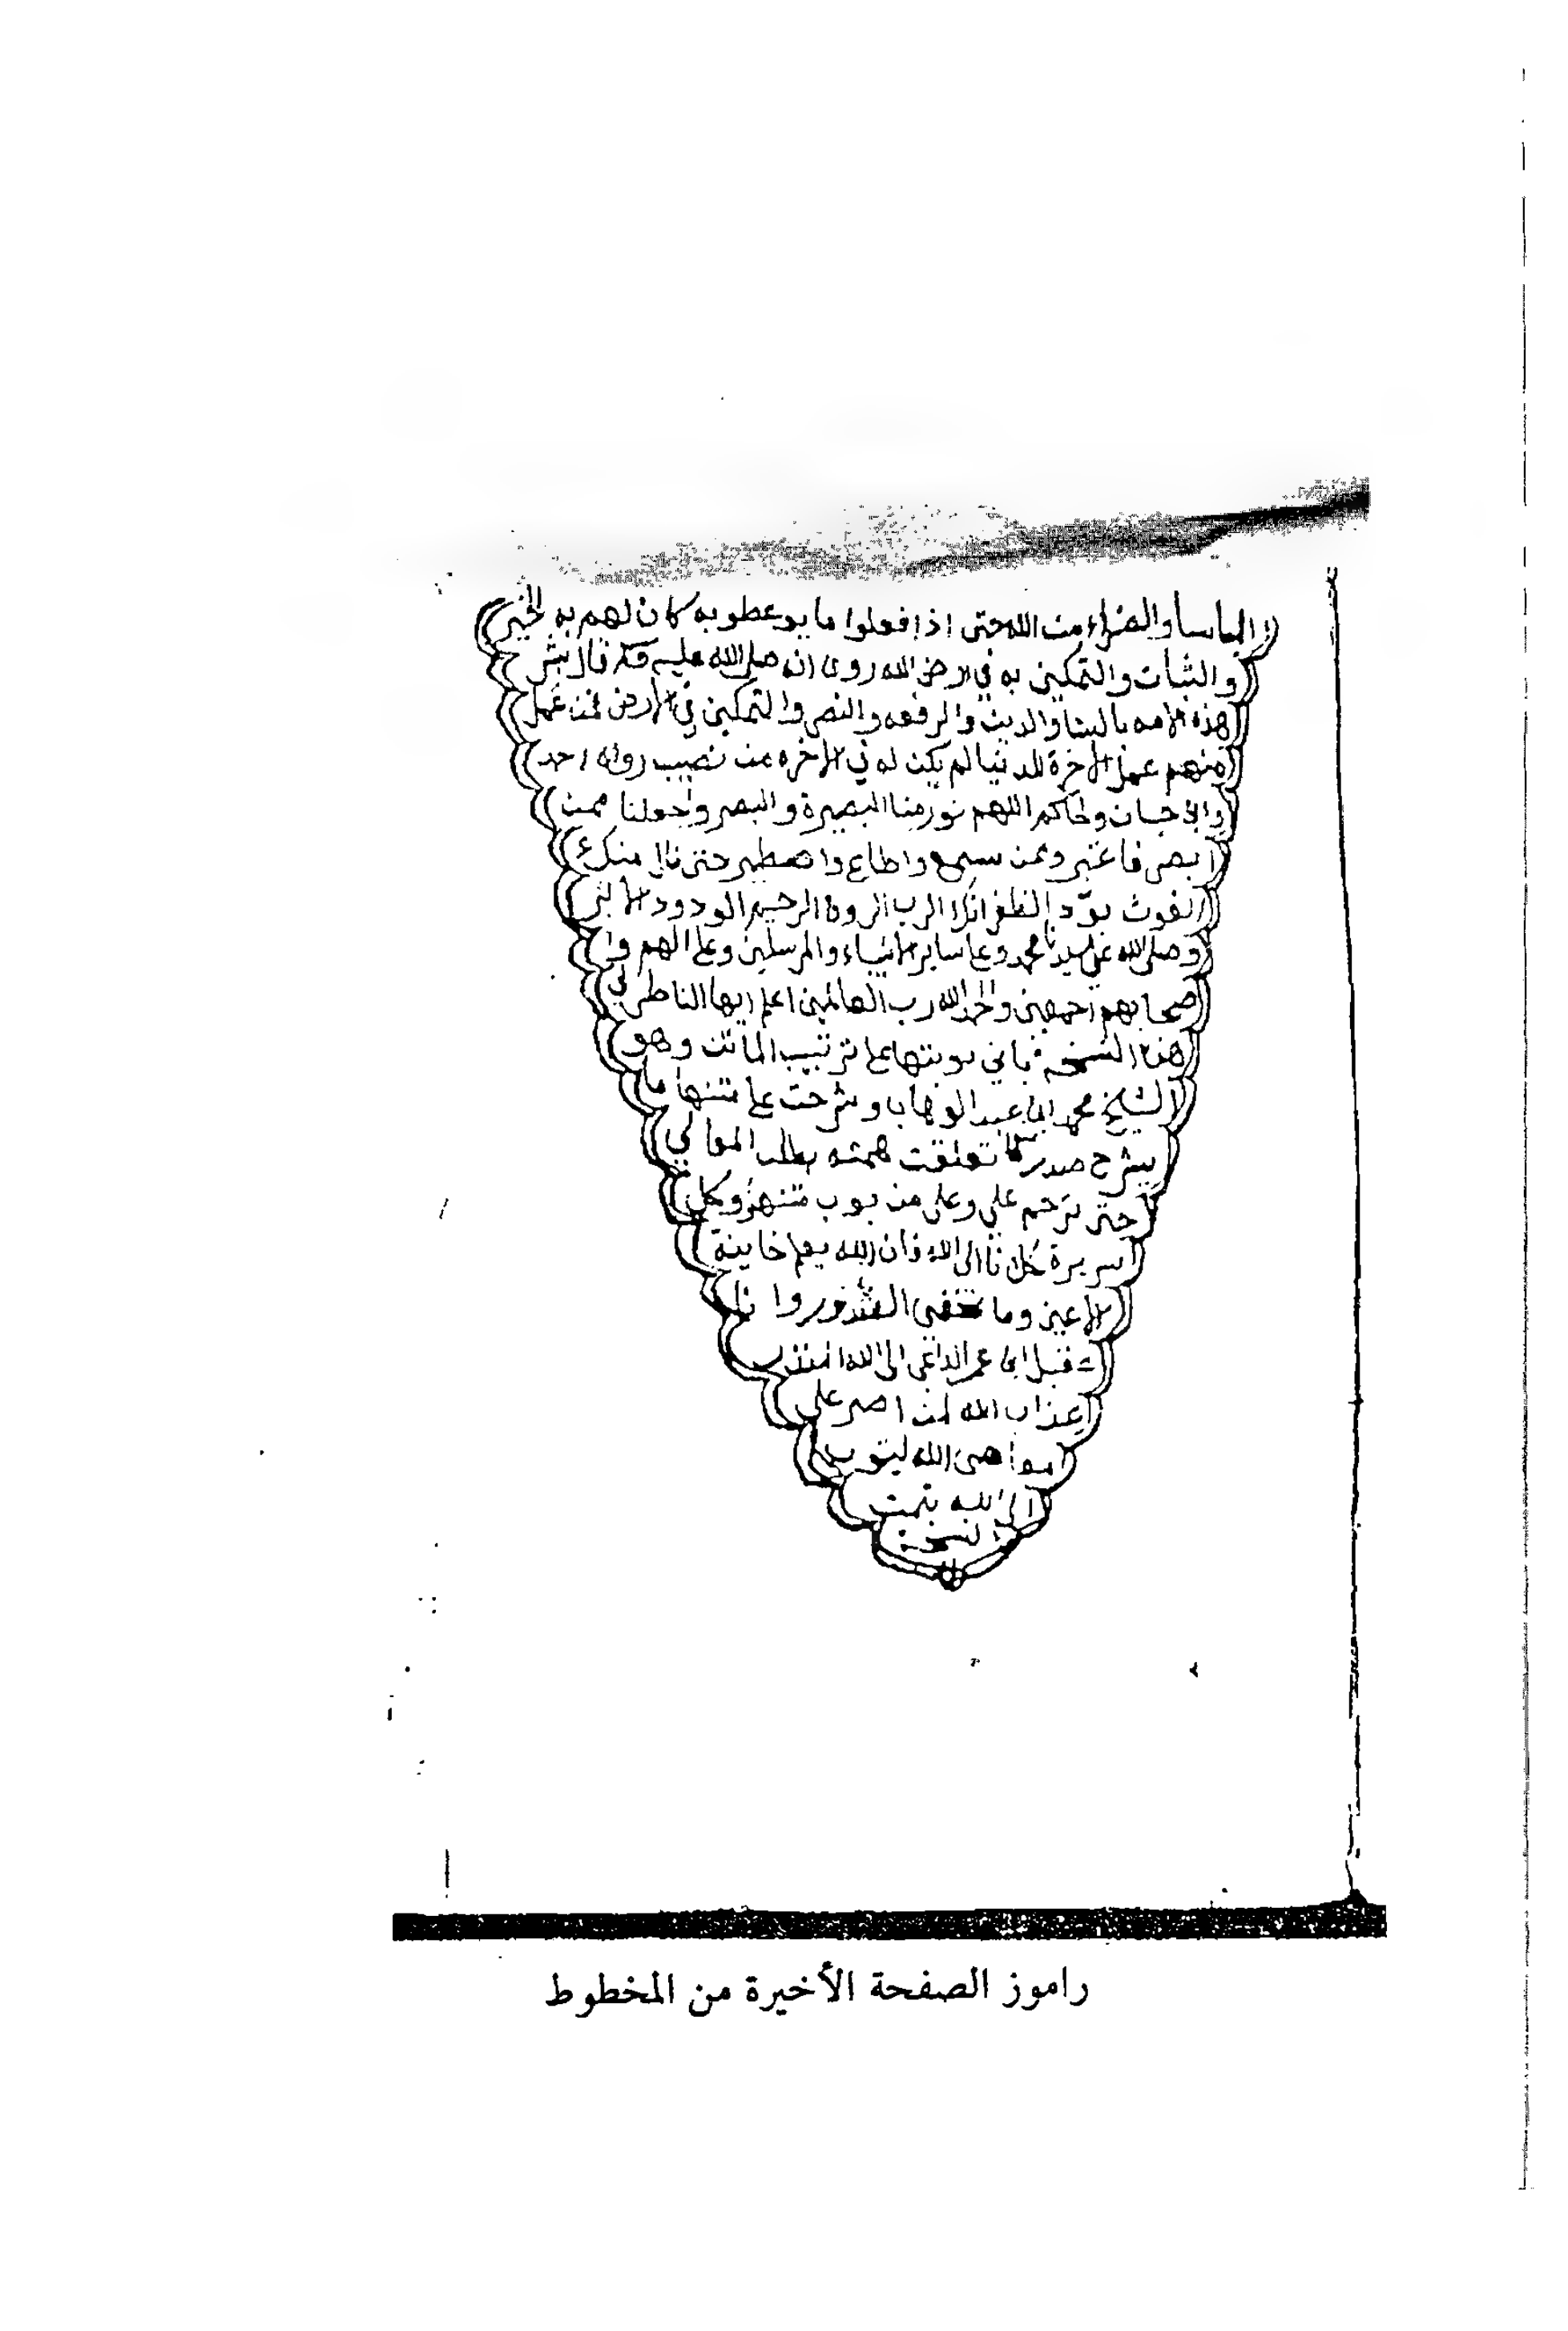 البأسا والضراء من الله حتى اذا فعلوا ما يوعظو به كان لهم به الخير
والثبات والتمكين به في الارض لله روى انه صلى الله عليه قد قال بشر
هذه الامه بالسنا والدين والرفعه والنصر والتمكين في الارض فمن عمل
منهم عمل الاخرة للدنيا لم يكن له في الاخره من نصيب رواه احمد
وابن حبان والحاكم اللهم نور منا البصيرة والبصر واجعلنا ممن
ابصر فاعتبر وممن سمع واطاع واصطبر حتى نال منك
الغوث انك الرب الرؤف الرحيم الودود
وصلى الله على سيدنا محمد وعلى ساير الانبياء والمرسلين وعلى الهم وا
صحابهم اجمعين والحمد لله رب العالمين اعلم ايها الناظر في
هذه النسخه فاني بوبتها على ترتيب الماتن وهو
الشيخ محمد ابن عبد الوهاب وشرحت على متنها ما
يشرح صدر تعلقت همته بطلب المعالي
حتى ترحم علي وعلى من بوب متنها وكل
سريرة الى الله فان الله يعلم خاينة
الاعين وما تخفى الصدور وانا
قبل ابن عمر الداعي الى الله المنذر
عذاب الله لمن اصر على
معاصى الله ليتوب
الى الله تمت
النسخة
راموز الصفحة الأخيرة من المخطوط